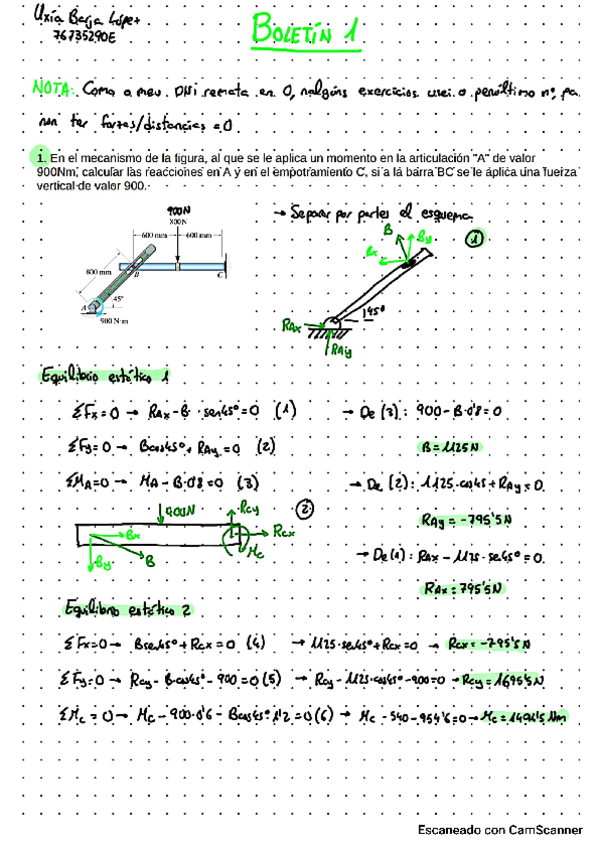 Uxía Barja López
76735290E
BOLETÍN 1
NOTA: Como o meu DNI remata en 0, nalgúns exercicios usei o penúltimo nº, pa
non ter forzas/distancias = 0
1. En el mecanismo de la figura, al que se le aplica un momento en la articulación "A" de valor
900Nm, calcular las reacciones en A y en el empotramiento C, si a la barra BC se le aplica una fuerza
vertical de valor 900.
900N
X00 N
600 mm
600 mm
800 mm
B
C
45°
A
900 N·m
→ Separar por partes el esquema
1
B
By
Bx
45°
RAx
RAy
Equilibrio estático 1
ΣFx=0 → RAx-B·sen45°=0 (1)
→ De (3): 900-B·0'8=0
ΣFy=0 → Bcos45°+RAy=0 (2)
B=1125N
ΣMA=0 → MA-B·0'8=0 (3)
→ De (2): 1125·cos45+RAy=0
RAy=-795'5N
→ De (1): RAx-1125·sen45°=0.
RAx=795'5N
900N
RCy
2
RCx
Mc
Bx
By
B
Equilibrio estático 2
ΣFx=0 → Bsen45°+RCx=0 (4) → 1125·sen45°+RCx=0 → RCx=-795'5N
ΣFy=0 → RCy-B·cos45°-900=0 (5) → RCy-1125·cos45°-900=0 → RCy=1695'5N
ΣMc=0 → Mc-900·0'6-Bcos45°·1'2=0 (6) → Mc-540-954'6=0 → Mc=1494'5Nm
Escaneado con CamScanner